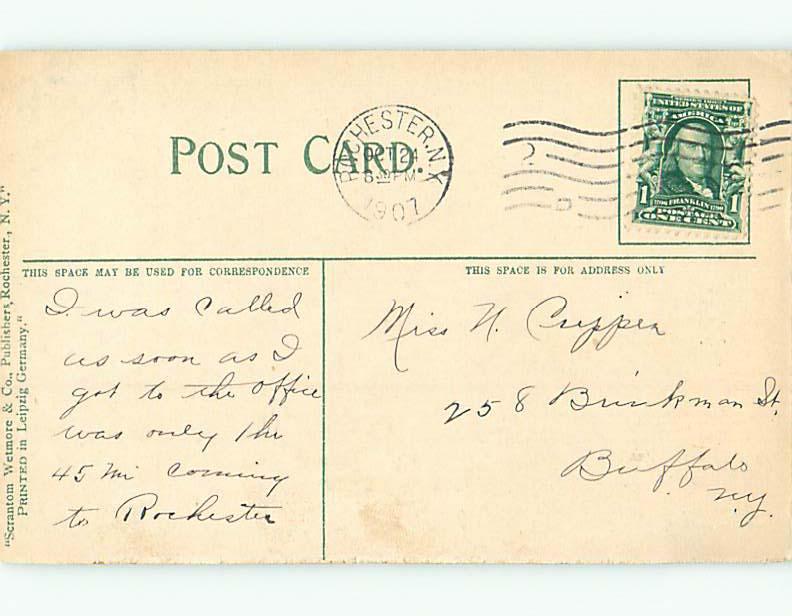 POST CARD.
ROCHESTER, N.Y.
OCT 24
8 30 PM
1907
SERIES 1902
UNITED STATES OF
AMERICA
1 FRANKLIN 1
POSTAGE
ONE CENT
THIS SPACE MAY BE USED FOR CORRESPONDENCE
THIS SPACE IS FOR ADDRESS ONLY
I was called
as soon as I
got to the office
was only 1 hr
45 mi coming
to Rochester
Miss N. Crippen
258 Brinkman St.
Buffalo
N.Y.
"Scrantom Wetmore & Co., Publishers, Rochester., N. Y."
PRINTED in Leipzig Germany."